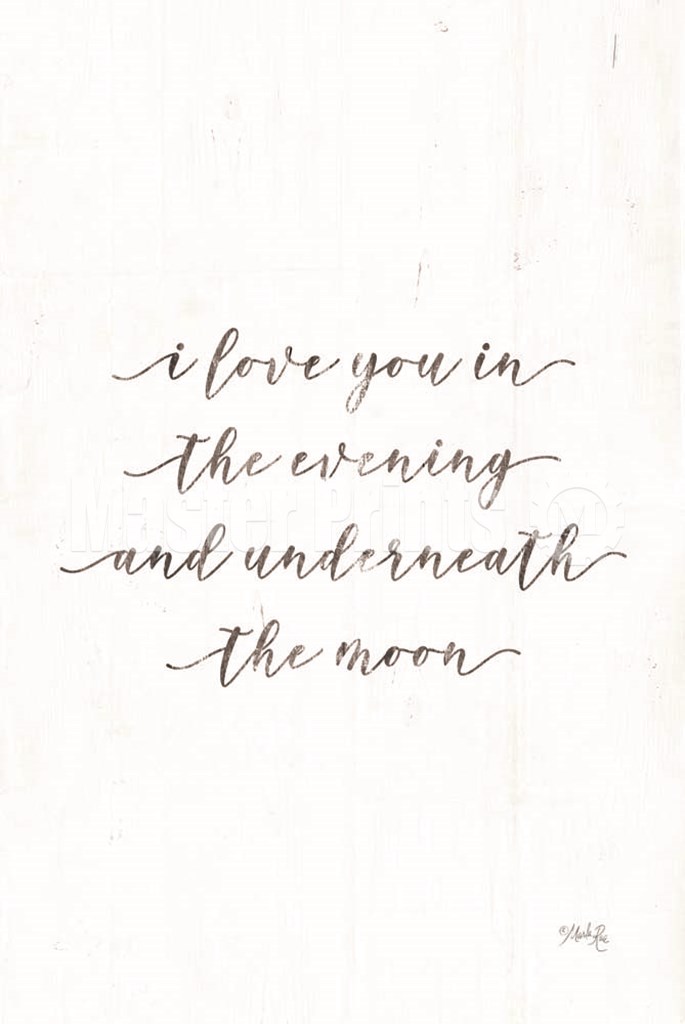 i love you in
the evening
Master Prints
and underneath
the moon
© Marla Rae